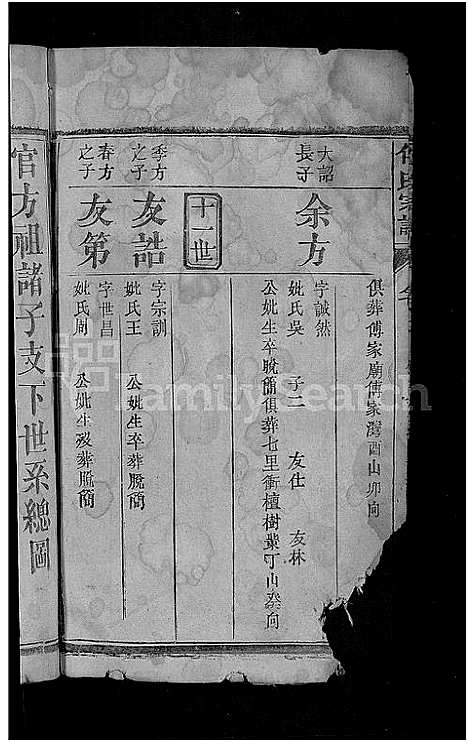 俱葬傅家廟傅家灣酉山卯向
大詔
長子
余方
字誠然
妣氏吳 子二 友仕 友林
公妣生卒脫簡俱葬七里衝檀樹業丁山癸向
十一世
季方
之子
友誥
字宗訓
妣氏王 公妣生卒葬脫簡
春方
之子
友第
字世昌
妣氏周 公妣生歿葬脫簡
官方祖諸子支下世系總圖
FamilySearch